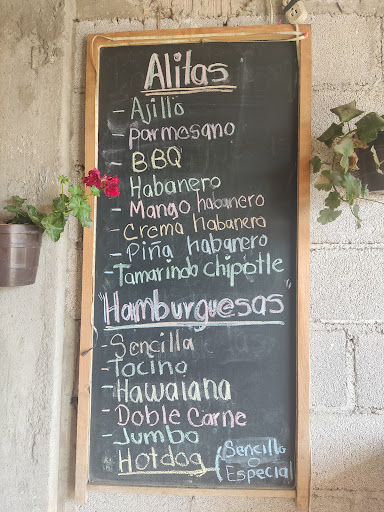 Alitas
- Ajillo
- parmesano
- BBQ
- Habanero
- Mango habanero
- Crema habanera
- Piña habanero
- Tamarindo chipotle
"Hamburguesas"
- Sencilla
- Tocino
- Hawaiana
- Doble Carne
- Jumbo
Hotdog { Sencillo
o
Especial